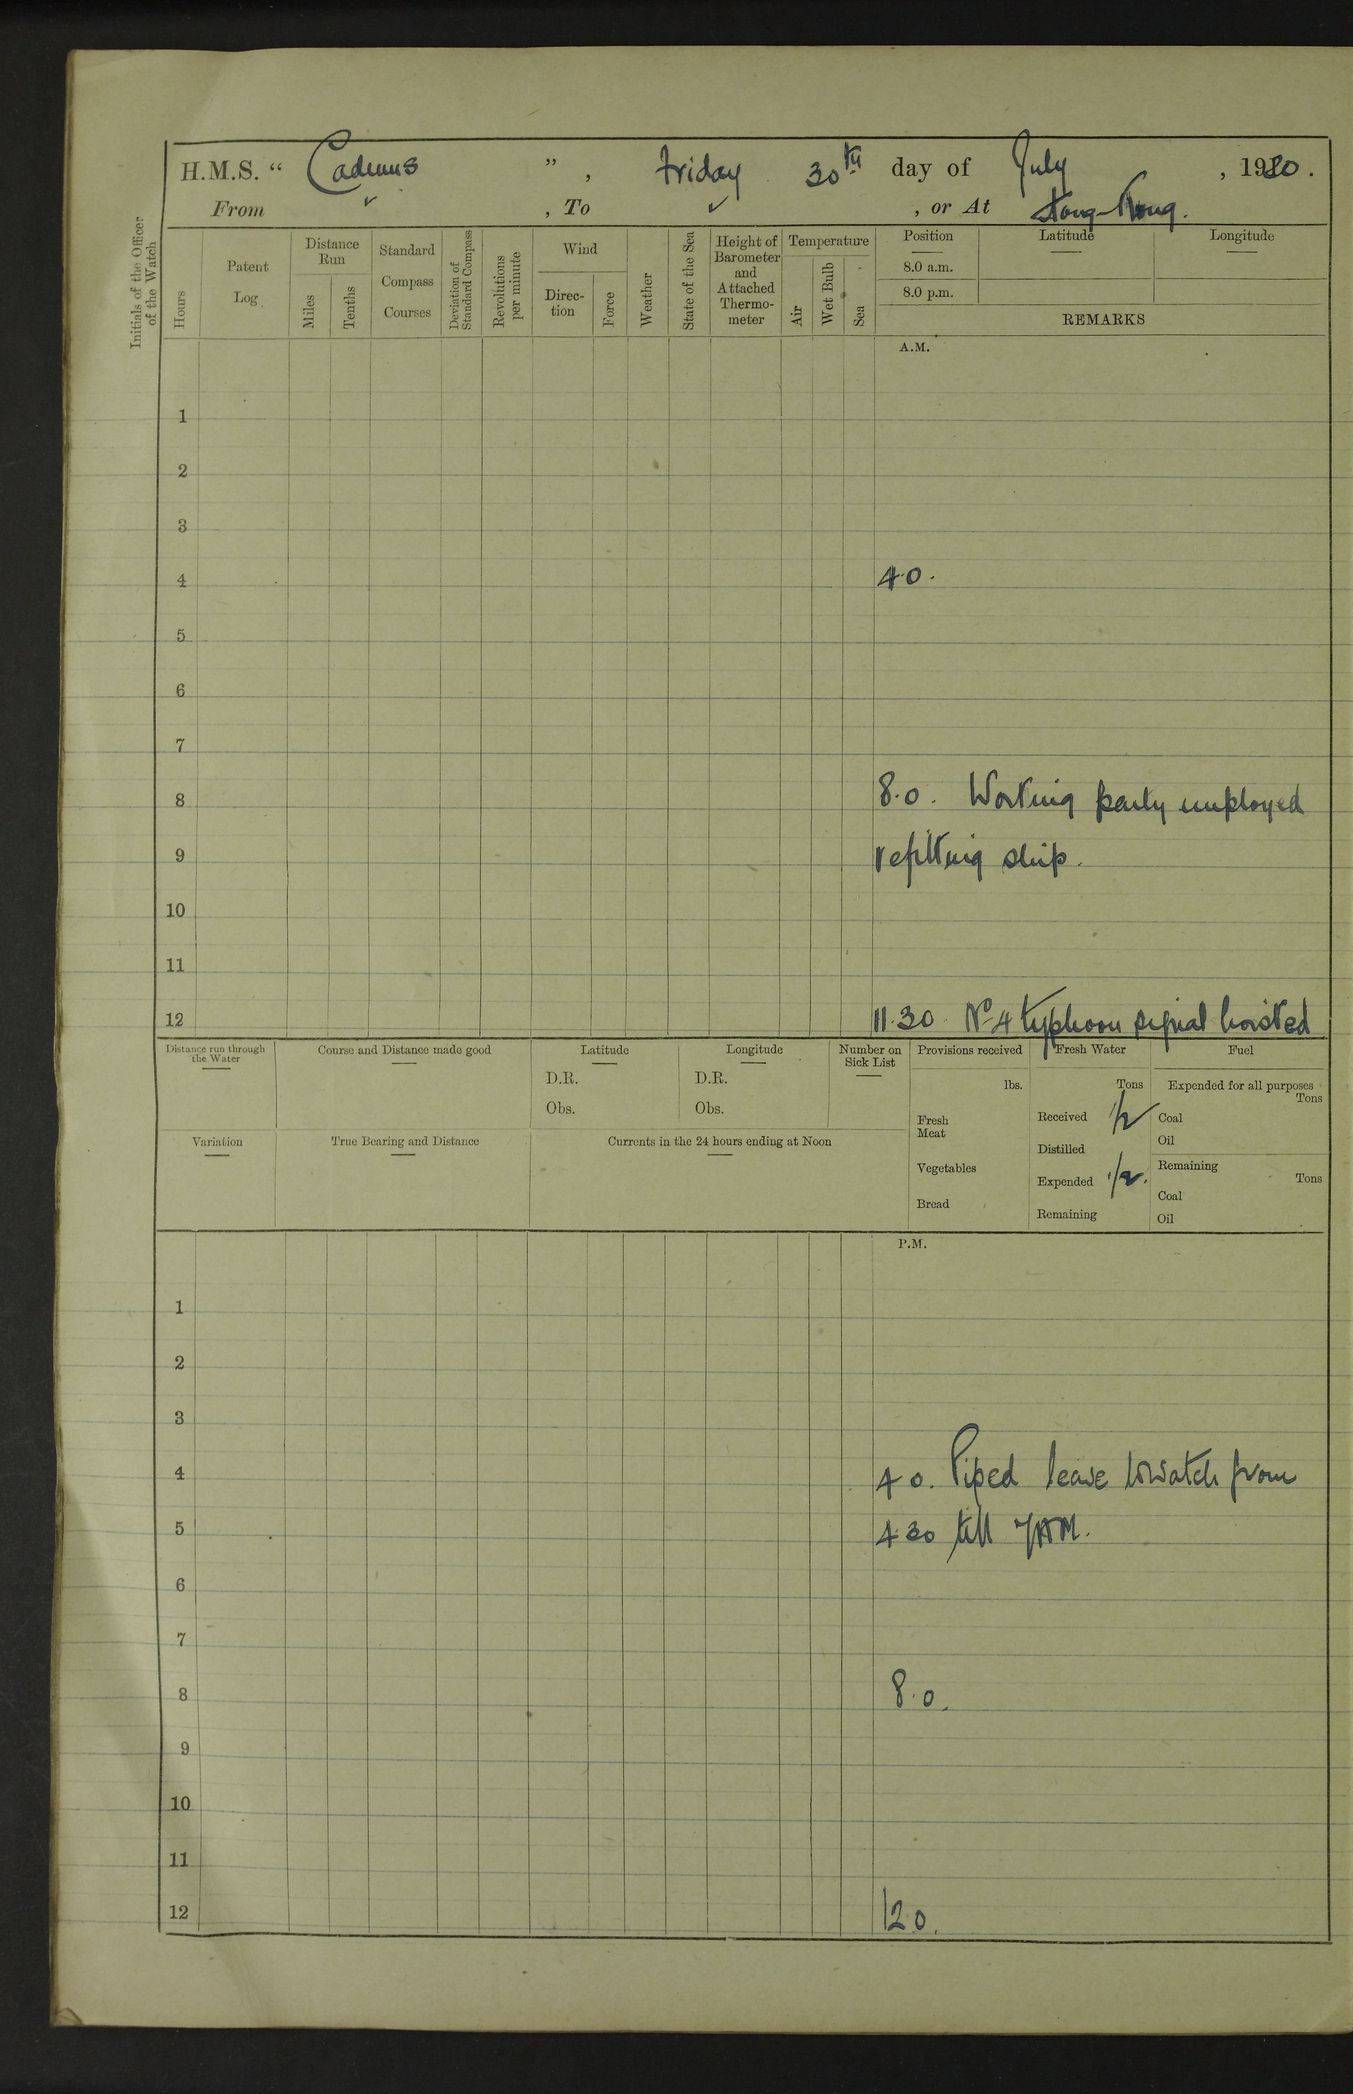 H.M.S. " Cadmus ", Friday 30th day of July, 1920.
From ✓, To ✓, or At Hong-Kong.
Initials of the Officer of the Watch
Hours
Patent Log
Distance Run
Miles
Tenths
Standard Compass Courses
Deviation of Standard Compass
Revolutions per minute
Wind
Direc-tion
Force
Weather
State of the Sea
Height of Barometer and Attached Thermo-meter
Temperature
Air
Wet Bulb
Sea
Position
Latitude
Longitude
8.0 a.m.
8.0 p.m.
REMARKS
A.M.
1
2
3
4 4.0.
5
6
7
8 8.0. Working party employed
9 refitting ship.
10
11
12 11.30. No 4 typhoon signal hoisted
Distance run through the Water
Course and Distance made good
Latitude
D.R.
Obs.
Longitude
D.R.
Obs.
Number on Sick List
Provisions received
lbs.
Fresh Meat
Vegetables
Bread
Fresh Water
Tons
Received 1/2
Distilled
Expended 1/2.
Remaining
Fuel
Expended for all purposes
Tons
Coal
Oil
Remaining
Tons
Coal
Oil
Variation
True Bearing and Distance
Currents in the 24 hours ending at Noon
P.M.
1
2
3
4 4.0. Piped leave to watch from
5 4.30 till 7AM.
6
7
8 8.0.
9
10
11
12 12.0.